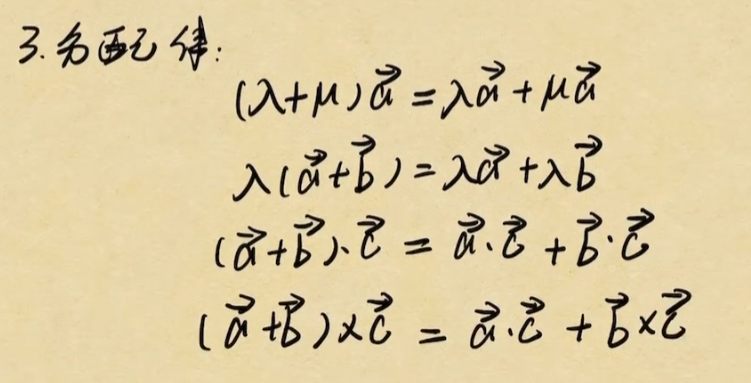 3. 分配律:
(λ+μ)a⃗ = λa⃗ + μa⃗
λ(a⃗+b⃗) = λa⃗ + λb⃗
(a⃗+b⃗)·c⃗ = a⃗·c⃗ + b⃗·c⃗
(a⃗+b⃗)×c⃗ = a⃗·c⃗ + b⃗×c⃗